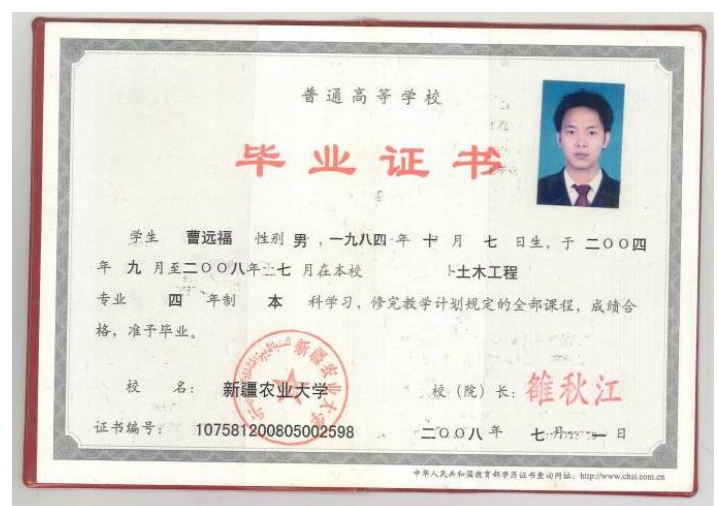 普通高等学校
毕业证书
学生 曹远福 性别 男 ，一九八四 年 十 月 七 日生，于 二〇〇四
年 九 月至二〇〇八年 七 月在本校 土木工程
专业 四 年制 本 科学习，修完教学计划规定的全部课程，成绩合
格，准予毕业。
新疆农业大学
校 名： 新疆农业大学 校（院）长：雒秋江
证书编号： 107581200805002598 二〇〇八 年 七 月 一 日
中华人民共和国教育部学历证书查询网址：http://www.chsi.com.cn